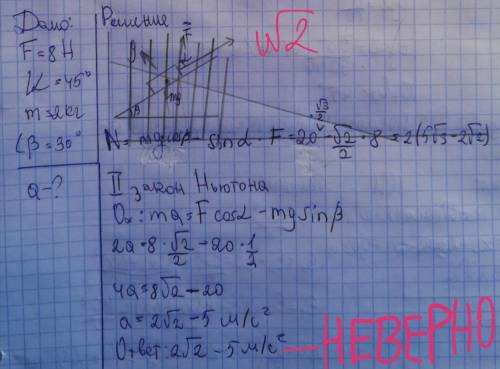 Дано: Решение
F=8Н
∠=45°
m=2кг
∠β=30°
a-?
√2
F
β
mg
√3/2
N= mgcosβ - sinα · F=20 - √2/2 · 8 = 2(5√3-2√2)
II закон Ньютона
Ox: ma=Fcosα-mgsinβ
2a=8·√2/2-20·1/2
4a=8√2-20
a=2√2-5 м/с²
Ответ: 2√2-5 м/с² — НЕВЕРНО